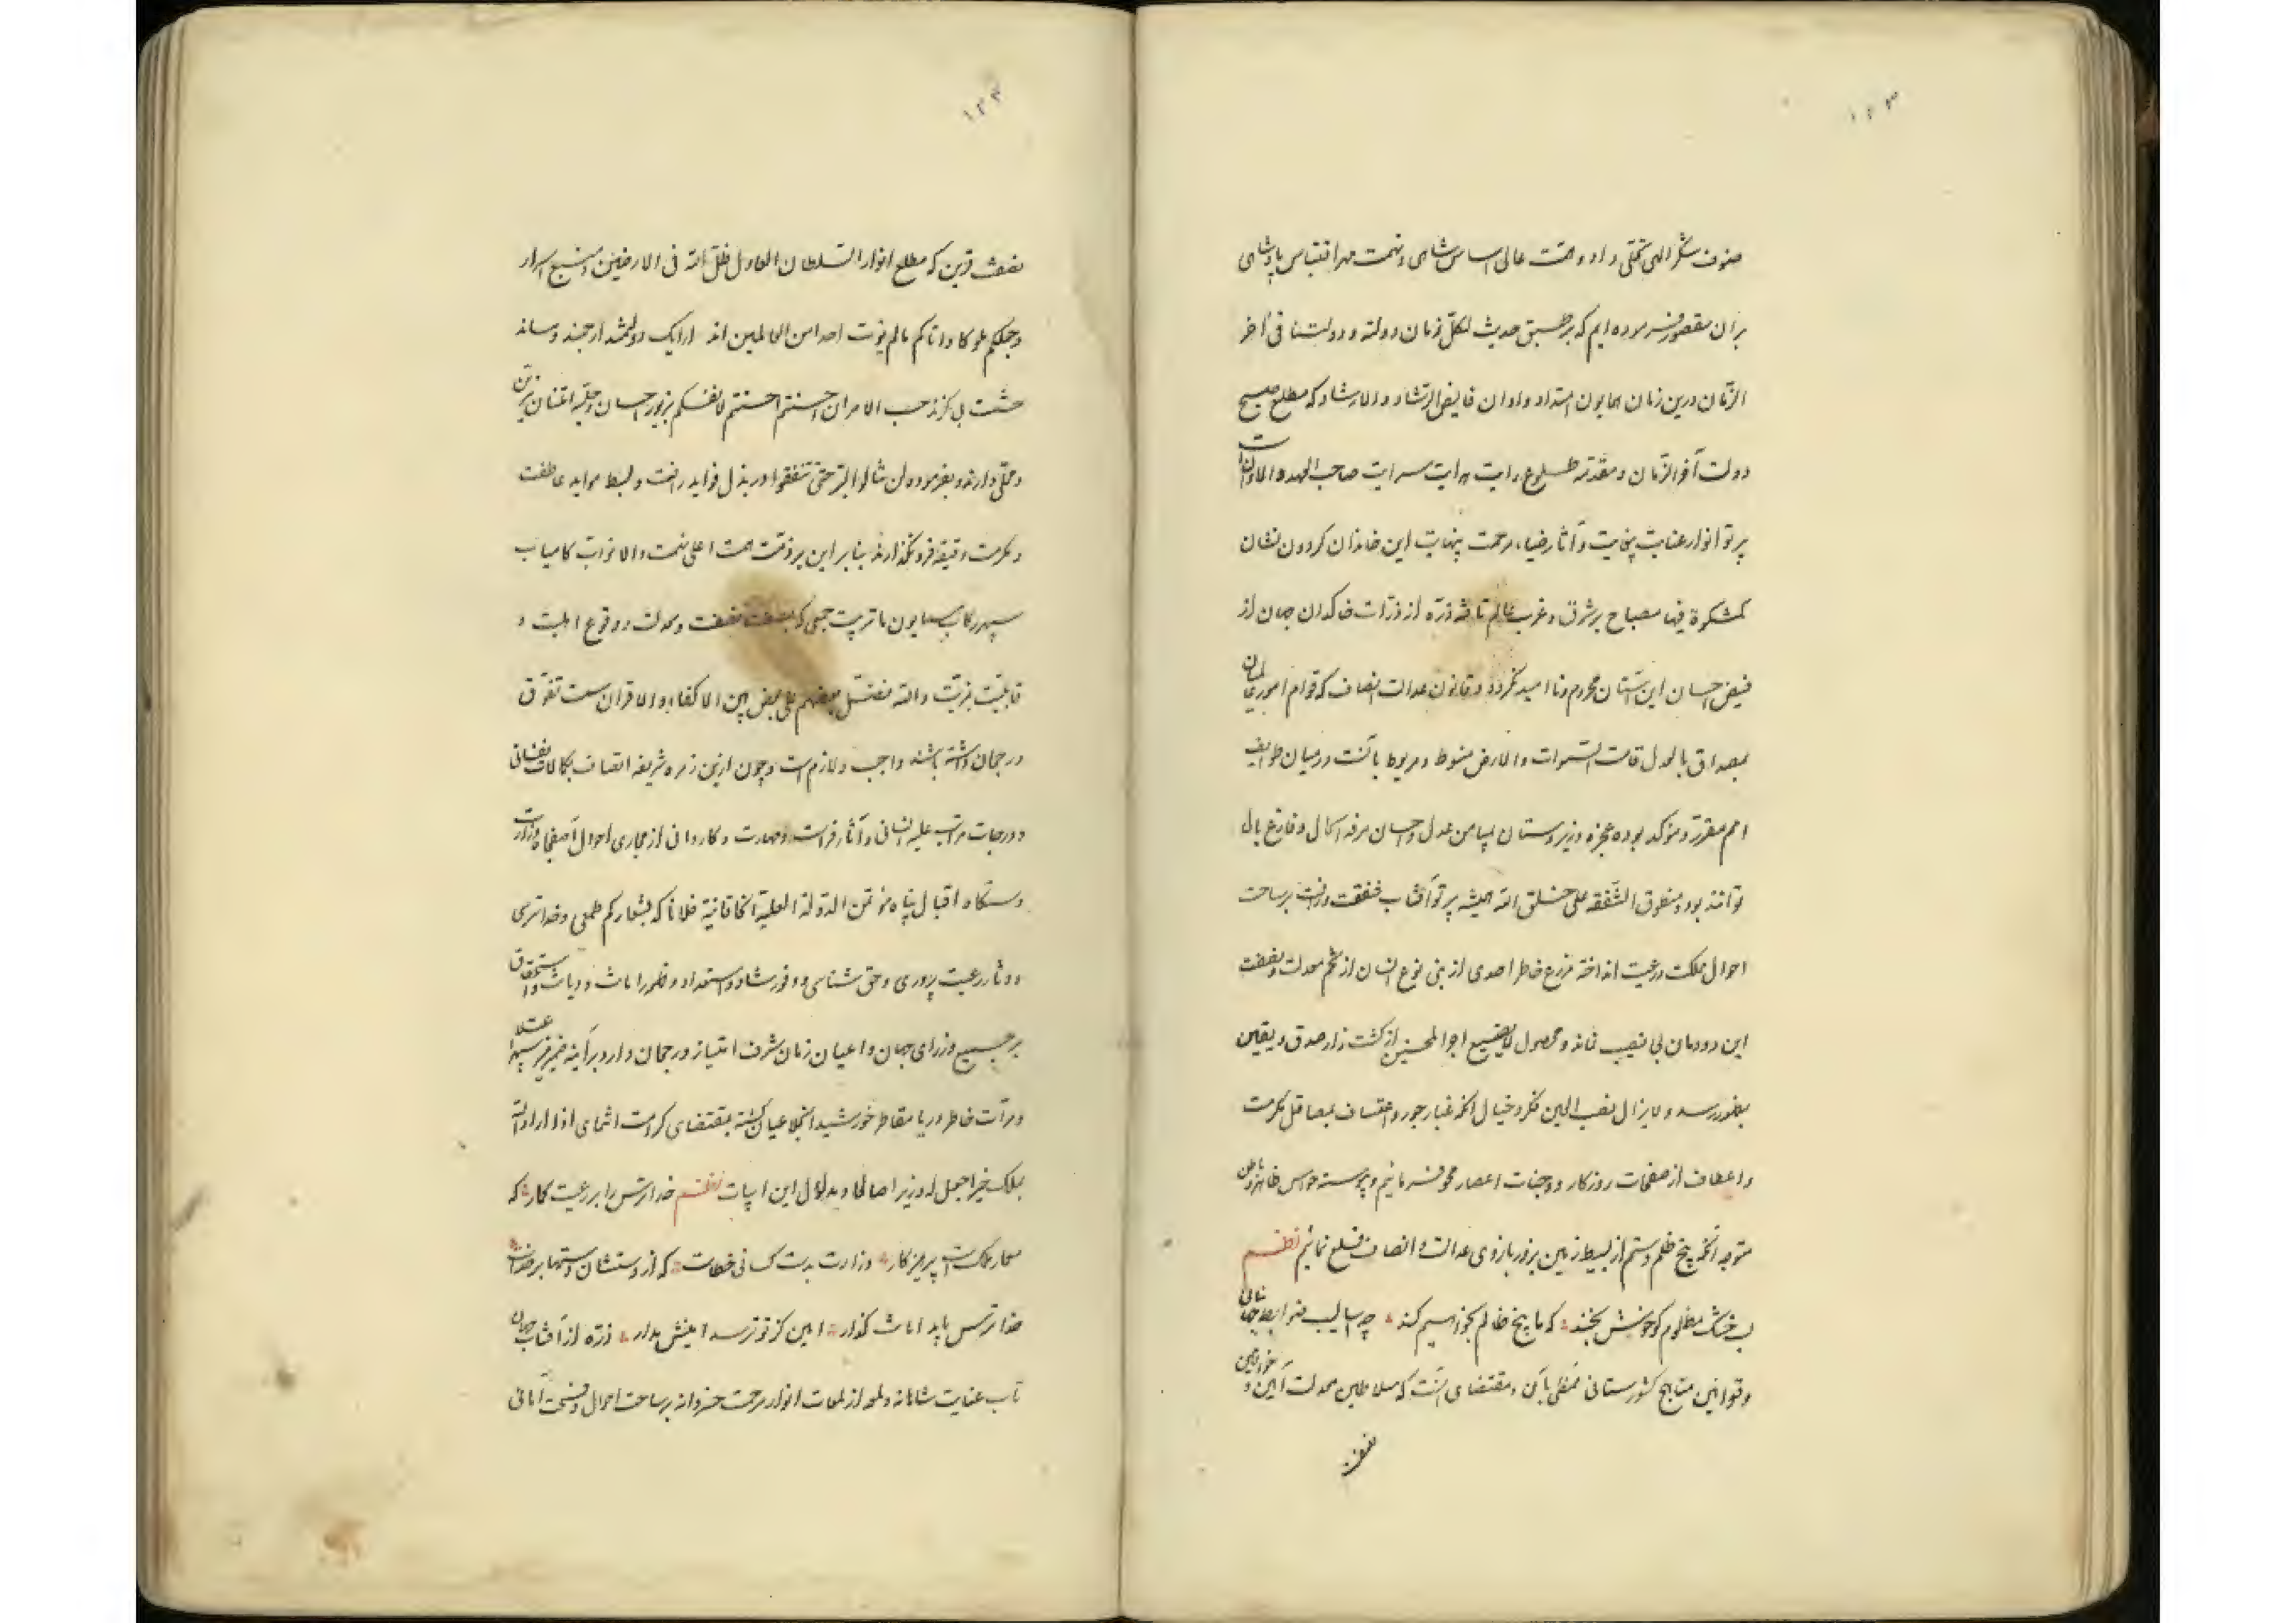 ۱۲۳
صنوف شکر الهی تحلّی داد و همت عالی اساس شاهی و نهمت مهر اقتباس پادشاهی
بر آن مقصور فرموده ایم که بر طبق حدیث لکل زمان دولة و دولتنا فی آخر
الزّمان درین زمان همایون امتداد و اوان فایض الرّشاد و الارشاد که مطلع صبح
دولت آخر الزّمان و مقدّمه طلوع رایت هدایت سرایت صاحب العهد و الاوانست
پرتو انوار عنایت بیغایت و آثار ضیاء مرحمت بینهایت این خاندان کردون نشان
کمشکوة فیها مصباح بر شرق و غرب عالم تافته ذرّه از ذرّات خاکدان جهان از
فیض احسان این آستان محروم و ناامید نکردد و قانون عدالت انصاف که قوام امور
بمصداق بالعدل قامت السّموات و الارض منوط و مربوط بآنست در میان طوایف
امم مقرر و مؤکد بوده عجزه و زیردستان بمیامن عدل و احسان مرفه الحال و فارغ بال
توانند بود و منطوق الشّفقة علی خلق الله همیشه پرتو آفتاب شفقت و رافت بر ساحت
احوال مملکت و رعیت انداخته مزرع خاطر احدی از بنی نوع انسان از تخم معدلت و نصفت
این دودمان بی نصیب نماند و محصول لا یضیع اجر المحسنین از کشت زار صدق و یقین
بظهور رسد و لایزال نصب العین فکر و خیال آنکه غبار جور و اعتساف بمصاقل مکرمت
و اعطاف از صفحات روزکار و وجنات اعصار محو فرمائیم و پیوسته حواس ظاهر و باطن
متوجه آنکه بیخ ظلم و ستم از بسیط زمین بزور بازوی عدالت و انصاف قلع نمائیم نظم
لب خشک مظلوم کو خوش بخند که ما بیخ ظالم بخواهیم کند چه اسالیب ضوابط جهانبانی
و قوانین مناهج کشورستانی مقتضی بآن و مقتضای آنست که سلاطین معدلت آیین و خواقین
نصفت
۱۲۴
نصفت قرین که مطلع انوار السّلطان العادل ظلّ الله فی الارضین و منبع اسرار
و جعلکم ملوکا و اتاکم ما لم یؤت احدا من العالمین اند ارایک دولتمند ارجمند و ساند
حشمت بی کزند حسب الامر ان احسنتم احسنتم لانفسکم بزیور احسان و حلیه امتنان مزین
و محلّی دارند و بفرموده لن تنالوا البرّ حتّی تنفقوا در بذل فواید رافت و بسط مواید عاطفت
و مکرمت دقیقه فرو نگذارند بنابر این بر ذمّت همت اعلی نهمت والا نواب کامیاب
سپهر رکاب همایون ما تربیت جمعی که بصفت نصفت و معدلت و وقوع اهلیت و
قابلیّت بمزیّت والله فضّل بعضهم علی بعض بین الاکفاء و الاقران سمت تفوّق
و رجحان داشته باشند واجب و لازم است و چون ازین زمره شریفه اتصاف بکمالات نفسانی
و درجات مراتب علیه انسانی و آثار فراست و مهارت و کاردانی از مجاری احوال آصفجاه وزارت
دستگاه اقبال پناه مؤتمن الدّولة العلیّة الخاقانیة فلانا که بشعار کم طمعی و خداترسی
و دثار رعیت پروری و حق شناسی و وفور رشاد و استعداد و ظهور امانت و دیانت و استحقاق
بر جمیع وزرای جهان و اعیان زمان شرف امتیاز و رجحان دارد بر آینه ضمیر منیر
و مرآت خاطر دریا مقاطر خورشید انجلا عیان کشته بمقتضای کرامت انتمای اذا اراد الله
بملک خیرا جعل له وزیرا صالحا و بدلول این ابیات نظم خداترس را بر رعیت کمار که
معمار ملکست پرهیزکار وزارت بدست کسانی خطاست که از دستشان دستها بر خداست
خداترس باید امانت گذار امین کز تو ترسد امینش مدار ذرّه از آفتاب جهان
تاب عنایت شاهانه و لمعه از لمعات انوار مرحمت خسروانه بر ساحت احوال و فسحت آمانی